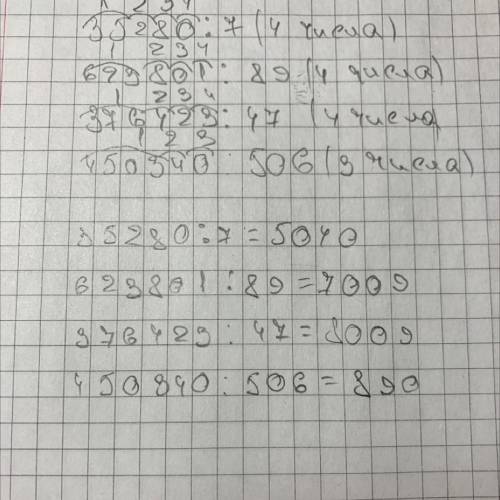 1 2 3 4
35280:7 (4 числа)
1 2 3 4
623801: 89 (4 числа)
1 2 3 4
376423: 47 (4 числа
1 2 3
450340: 506 (3 числа)
35280:7=5040
623801:89=7009
376423:47=8009
450340:506=890